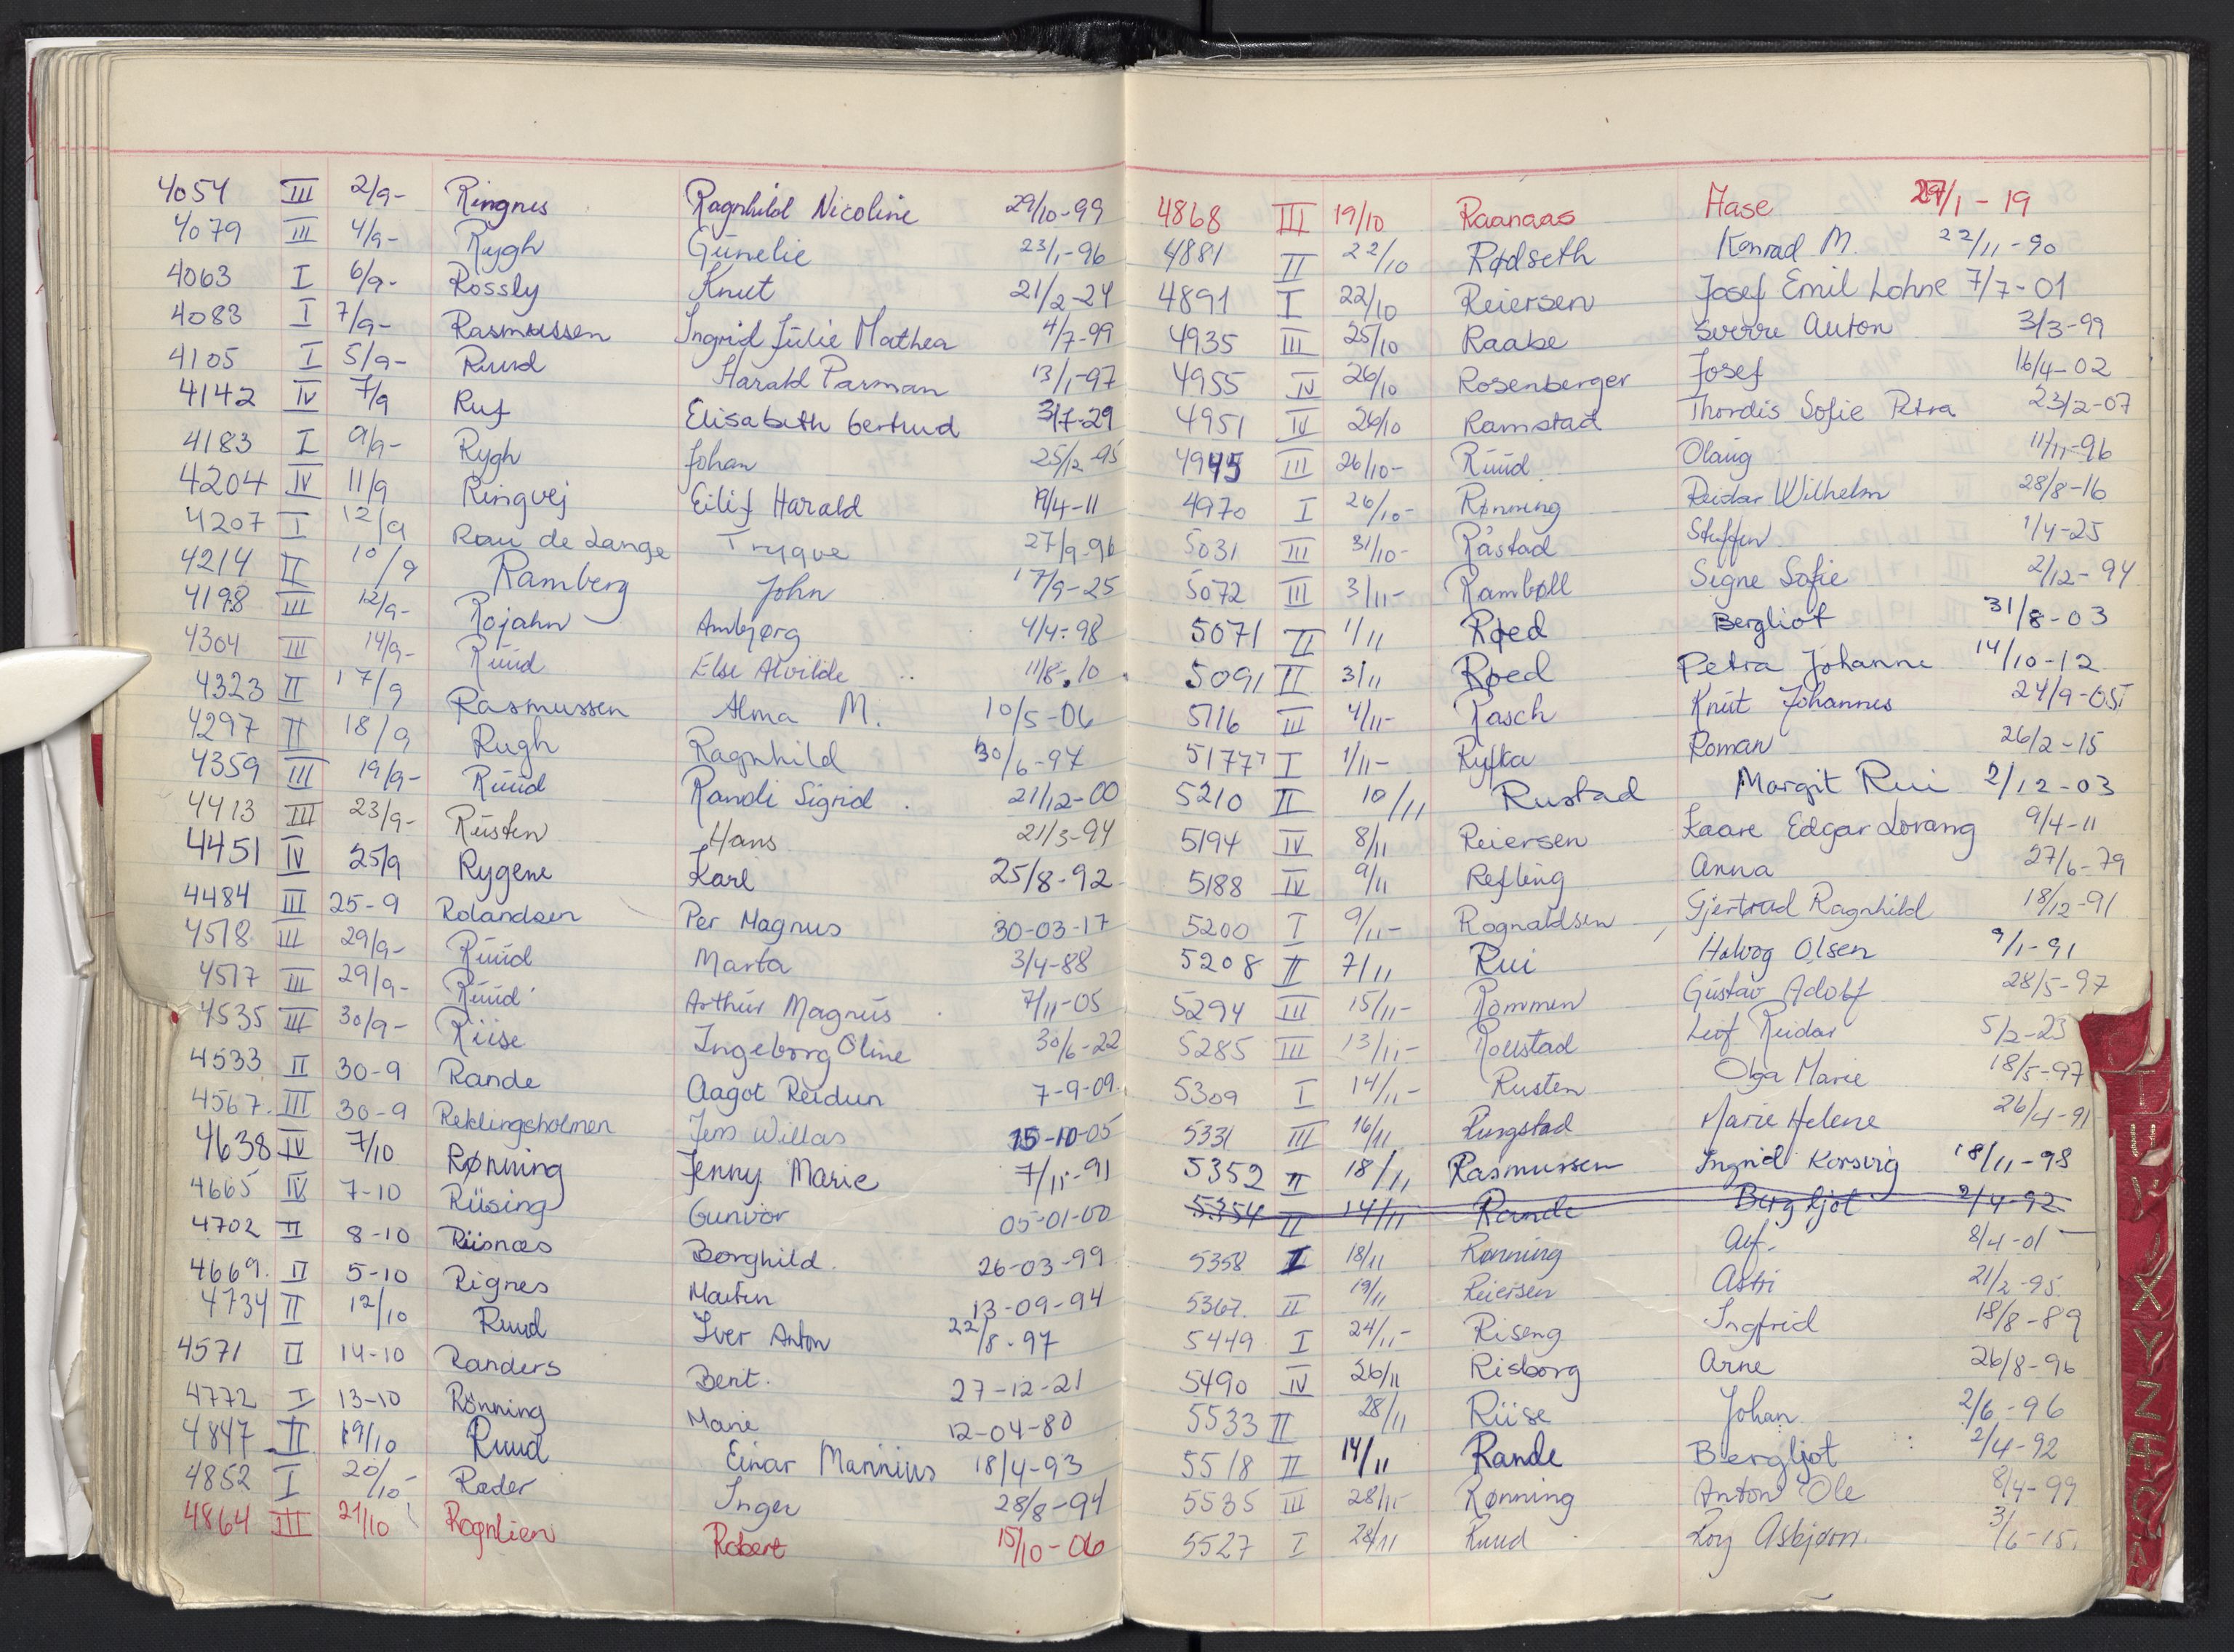 4054 III 2/9- Ringnes Ragnhild Nicoline 29/10-99
4079 III 4/9- Rygh Gunelie 23/1-96
4063 I 6/9- Rossly Knut 21/2-24
4083 I 7/9- Rasmussen Ingrid Julie Mathea 4/7-99
4105 I 5/9- Ruud Harald Parman 13/1-97
4142 IV 7/9 Ruf Elisabeth Gertrud 3/7-29
4183 I 9/9- Rygh Johan 25/2-95
4204 IV 11/9 Ringvej Eilif Harald 19/4-11
4207 I 12/9 Rau de Lange Trygve 27/9-96
4214 II 10/9 Ramberg John 17/9-25
4198 III 12/9- Rojahn Ambjørg 4/4-98
4304 III 14/9- Ruud Else Alvilde 11/8-10
4323 II 17/9 Rasmussen Alma M. 10/5-06
4297 II 18/9 Rugh Ragnhild 30/6-97
4359 III 19/9- Ruud Randi Sigrid 21/12-00
4413 III 23/9- Rusten Hans 21/3-94
4451 IV 25/9 Rygene Karl 25/8-92
4484 III 25-9 Rolandsen Per Magnus 30-03-17
4518 III 29/9- Ruud Marta 3/4-88
4517 III 29/9- Ruud Arthur Magnus 7/11-05
4535 III 30/9- Riise Ingeborg Oline 30/6-22
4533 II 30-9 Rande Aagot Reidun 7-9-09
4567. III 30-9 Reklingsholmen Jens Willas 15-10-05
4638 IV 7/10 Rønning Jenny Marie 7/11-91
4665 IV 7-10 Riising Gunvor 05-01-00
4702 II 8-10 Riisnæs Borghild. 26-03-99
4669. II 5-10 Rignes Martin 13-09-94
4734 II 12/10 Ruud Iver Anton 22/8-97
4571 II 14-10 Randers Bent. 27-12-21
4772 I 13-10 Rønning Marie 12-04-80
4847 II 19/10 Ruud Einar Marinius 18/4-93
4852 I 20/10- Rader Inger 28/8-94
4864 III 21/10 Rognlien Robert 15/10-06
4868 III 19/10 Raanaas Aase 27/1-19
4881 II 22/10 Rødseth Konrad M. 22/11-90
4891 I 22/10 Reiersen Josef Emil Lohne 7/7-01
4935 III 25/10 Raabe Sverre Anton 3/3-99
4955 IV 26/10 Rosenberger Josef 16/4-02
4951 IV 26/10 Ramstad Thordis Sofie Petra 23/2-07
4945 III 26/10- Ruud Olaug 11/11-96
4970 I 26/10- Rønning Reidar Wilhelm 28/8-16
5031 III 31/10- Råstad Steffen 1/4-25
5072 III 3/11- Rambøll Signe Sofie 2/12-94
5071 II 1/11 Røed Bergliot 31/8-03
5091 II 3/11 Røed Petra Johanne 14/10-12
5116 III 4/11- Rasch Knut Johannes 24/9-05
5177 I 1/11- Ryfka Roman 26/2-15
5210 II 10/11 Rustad Margit Rui 2/12-03
5194 IV 8/11 Reiersen Kaare Edgar Lorang 9/4-11
5188 IV 9/11 Refling Anna 27/6-79
5200 I 9/11- Rognaldsen Gjertrud Ragnhild 18/12-91
5208 II 7/11 Rui Halvog Olsen 9/1-91
5294 III 15/11- Rommen Gustav Adolf 28/5-97
5285 III 13/11- Rollstad Leif Reidar 5/2-23
5309 I 14/11- Rusten Olga Marie 18/5-97
5331 III 16/11 Rungstad Marie Helene 26/4-91
5352 II 18/11 Rasmussen Ingrid Korsvig 18/11-98
5354 II 14/11 Rande Bergljot 2/4-92
5358 I 18/11 Rønning Alf. 8/4-01
5367. II 19/11 Reiersen Astri 21/2-95.
5449 I 24/11- Riseng Ingfrid 18/8-89
5490 IV 26/11 Risborg Arne 26/8-96
5533 II 28/11 Riise Johan 2/6-96
5518 II 14/11 Rande Bergljot 2/4-92
5535 III 28/11- Rønning Anton Ole 8/4-99
5527 I 28/11 Ruud Roy Asbjørn. 3/6-15.
X
Y
Z
Æ
Ø